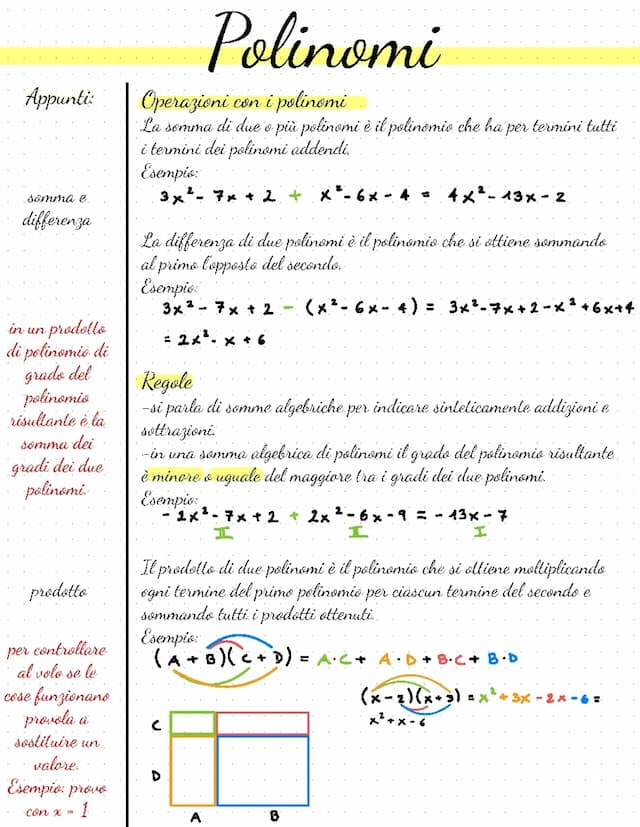 Polinomi
Appunti:
Operazioni con i polinomi
La somma di due o più polinomi è il polinomio che ha per termini tutti
i termini dei polinomi addendi.
Esempio:
somma e
differenza
3x² - 7x + 2 + x² - 6x - 4 = 4x² - 13x - 2
La differenza di due polinomi è il polinomio che si ottiene sommando
al primo l'opposto del secondo.
Esempio:
3x² - 7x + 2 - (x² - 6x - 4) = 3x² - 7x + 2 - x² + 6x + 4
= 2x² - x + 6
in un prodotto
di polinomio di
grado del
polinomio
risultante è la
somma dei
gradi dei due
polinomi.
Regole
-si parla di somme algebriche per indicare sinteticamente addizioni e
sottrazioni.
-in una somma algebrica di polinomi il grado del polinomio risultante
è minore o uguale del maggiore tra i gradi dei due polinomi.
Esempio:
- 2x² - 7x + 2 + 2x² - 6x - 9 = - 13x - 7
II II I
prodotto
Il prodotto di due polinomi è il polinomio che si ottiene moltiplicando
ogni termine del primo polinomio per ciascun termine del secondo e
sommando tutti i prodotti ottenuti.
Esempio:
(A + B)(C + D) = A·C + A·D + B·C + B·D
(x - 2)(x + 3) = x² + 3x - 2x - 6 =
x² + x - 6
per controllare
al volo se le
cose funzionano
provola a
sostituire un
valore.
Esempio: provo
con x = 1
C
D
A B